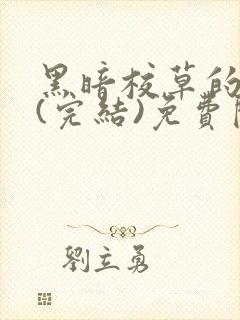 黑暗校草的
(完結)免費
劉立勇